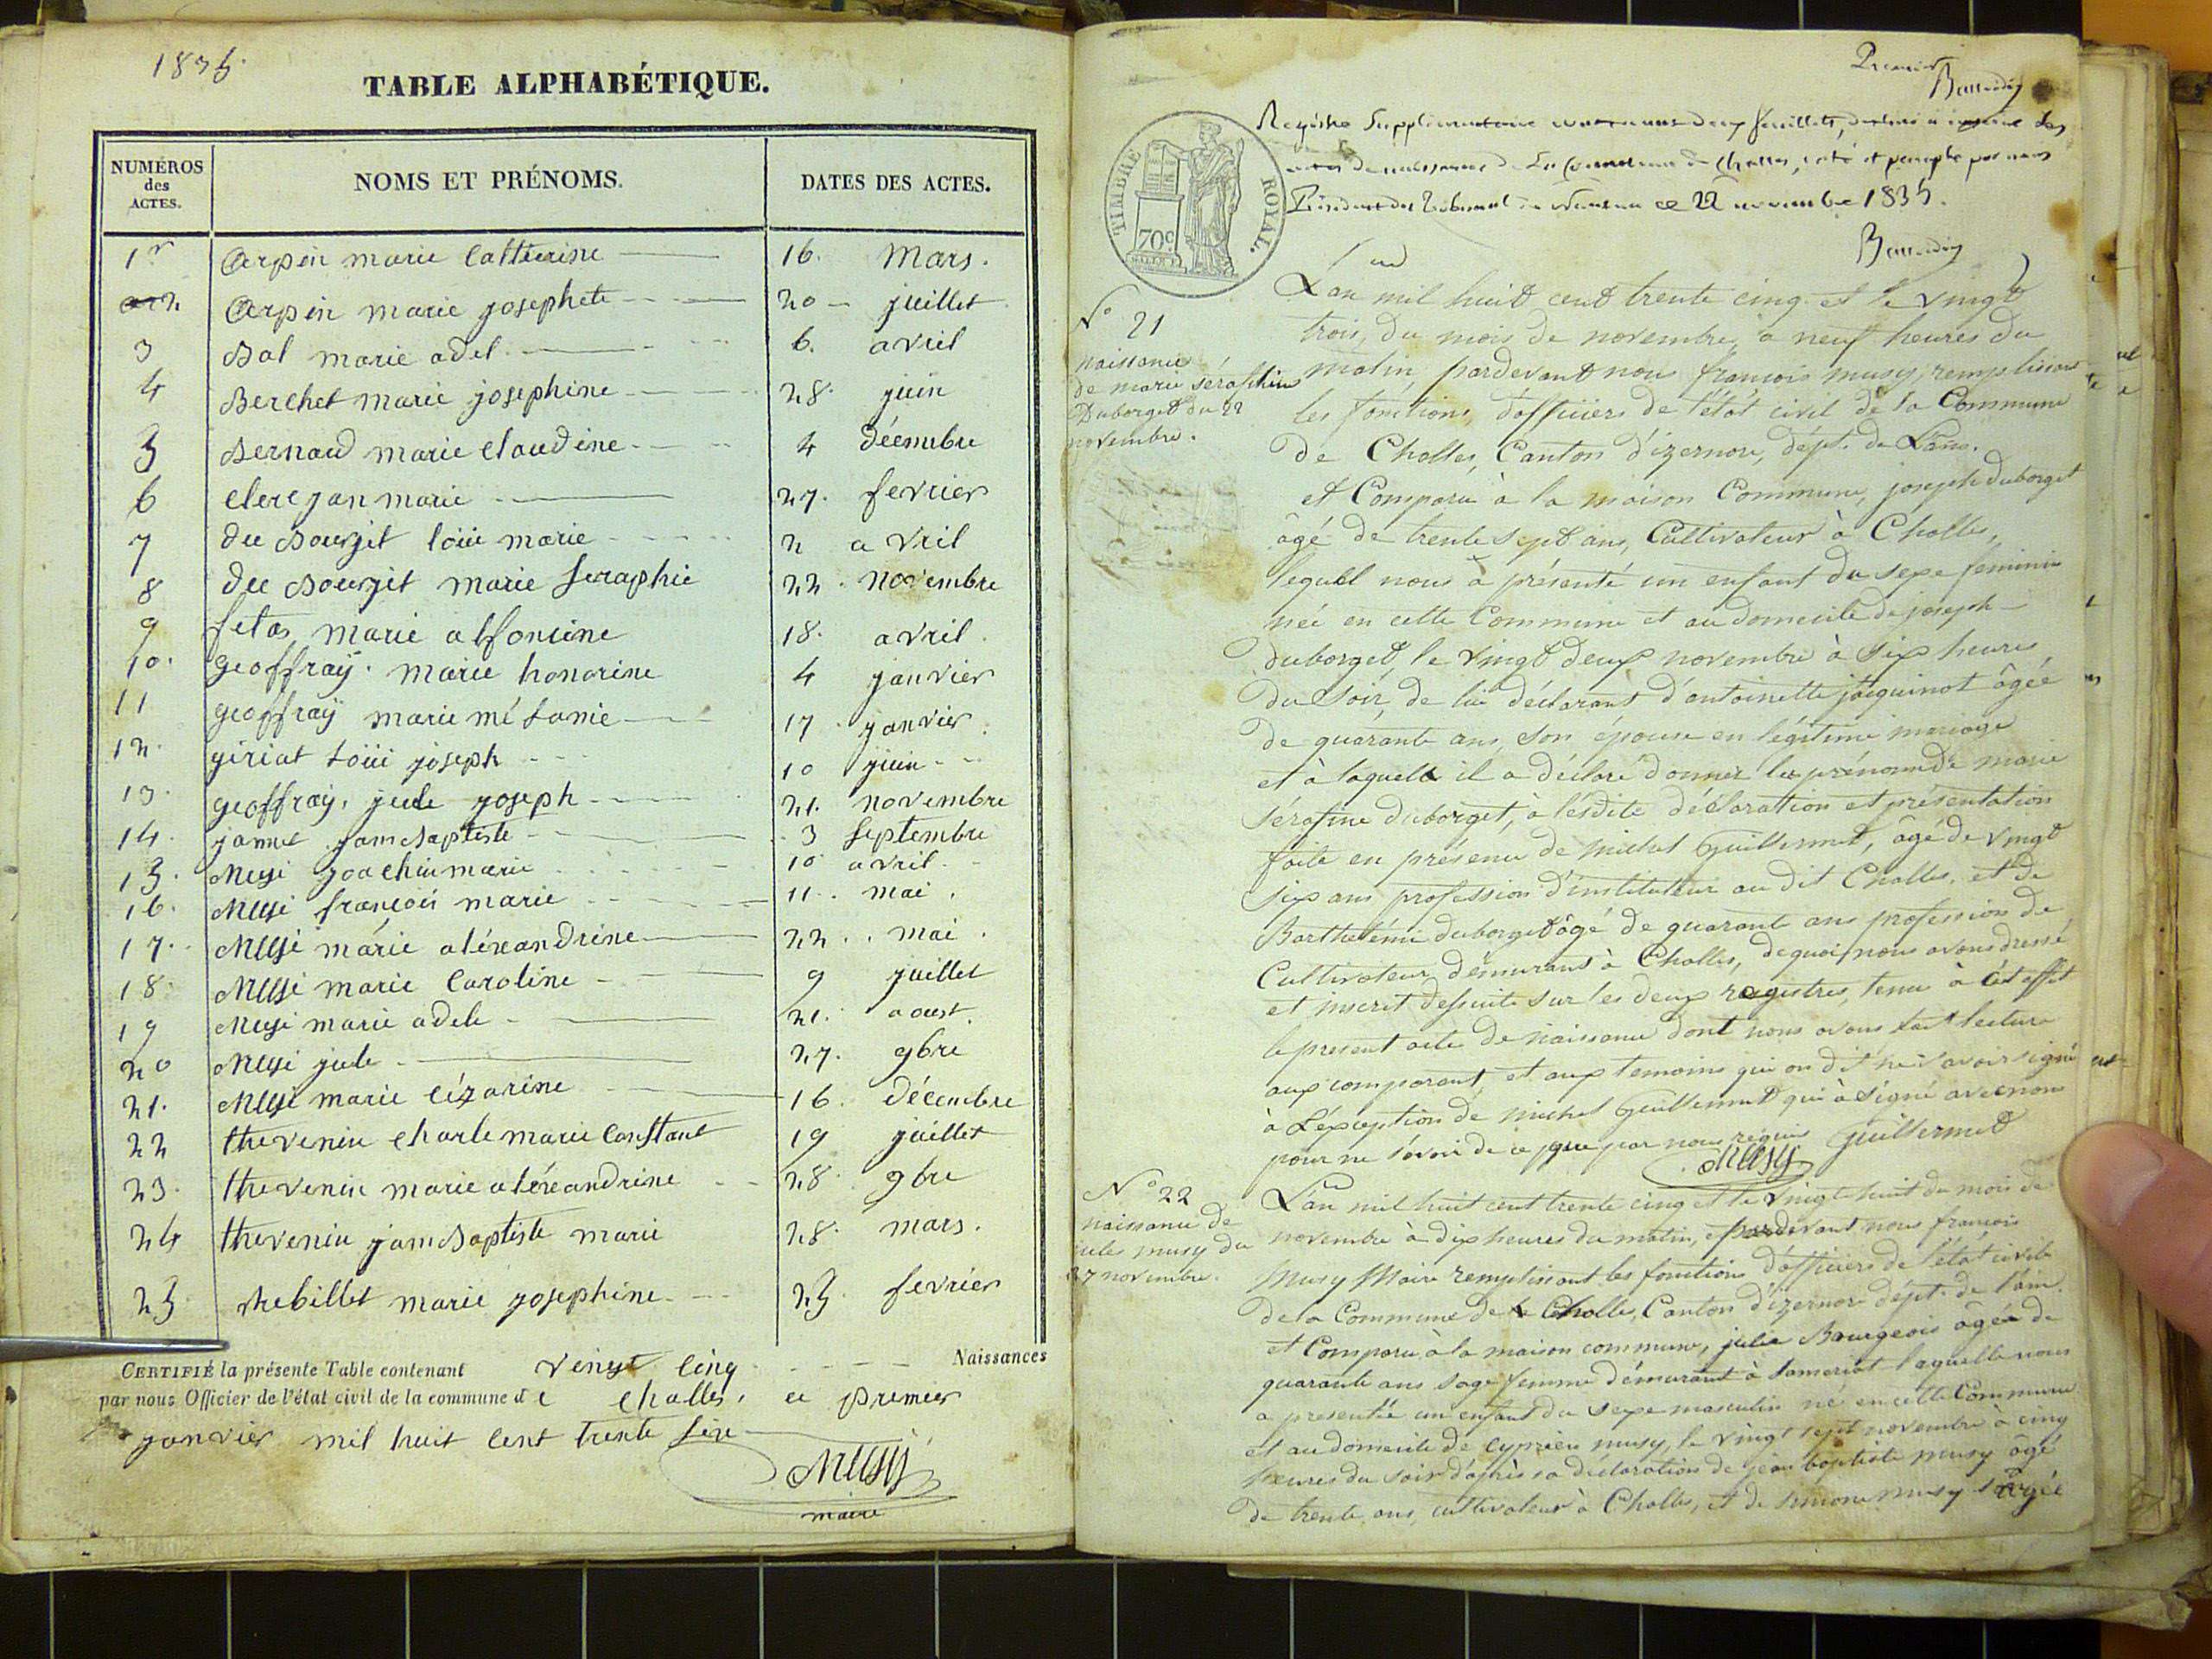 1835
TABLE ALPHABÉTIQUE.
NUMÉROS
des
ACTES.
NOMS ET PRÉNOMS.
DATES DES ACTES.
1r arpin marie Catherine 16. Mars.
2 arpin marie josephete 20 juillet
3 Bal marie adel 6. avril
4 Berchet marie josephine 28. juin
5 Bernard marie claudine 4 décembre
6 clerc jan marie 27. fevrier
7 du Bourgit loüi marie 2 avril
8 du Bourgit marie Seraphie 22. novembre
9 fetas marie alfoncine 18. avril
10. geoffraÿ. marie honorine 4 janvier
11 geoffraÿ marie mélanie 17 janvier.
12. giriat Loüi joseph 10 juin
13. geoffraÿ, jule joseph 21. novembre
14. jamet jam Baptiste 3 septembre
15. Musi joachin marie 10 avril
16. Musi françois marie 11. mai
17. Musi marie aléxandrine 22. mai.
18. Musi marie Caroline 9 juillet
19 Musi marie adele 21. aoust.
20 Musi jule 27. 9bre
21. Musi marie cézarine 16. décembre
22 thevenin charle marie Constant 19 juillet
23. thevenin marie aléxandrine 28. 9bre
24 thevenin jam Baptiste marie 28. mars.
25 rebillet marie josephine 25. fevrier
CERTIFIÉ la présente Table contenant vingt cinq Naissances
par nous Officier de l'état civil de la commune de challes, ce premier
janvier mil huit cent trente six
Musy
maire
Premier
Registre supplémentaire contenant deux feuillets, destiné à inscrire les
actes de naissances de la Commune de Challes, coté et paraphé par nous
Président du Tribunal de Nantua ce 22 novembre 1835.
TIMBRE ROYAL.
70c
N° 21
naissance
de marie séraphine
Duborget du 22
novembre.
L'an mil huit cent trente cinq et le vingt
trois, du mois de novembre, à neuf heures du
matin, pardevant nous françois musy, remplissant
les fonctions, d'officiers de l'état civil de la Commune
de Challes, Canton d'izernore, dépt. de L'ain.
et Comparu à la maison Commune, joseph duborget
âgé de trente sept ans, Cultivateur à Challes,
lequel nous à présenté un enfant du sexe feminin
née en cette Commune et au domicile de joseph
duborget, le vingt deux novembre à six heures
du soir, de lui déclarant d'antoinette jacquinot âgée
de quarante ans, son épouse en légitime mariage
et à laquelle il a déclaré donner les prénoms de marie
sérafine duborget, à lesdite déclarattion et présentation
faite en présence de michel Guillermet, âgé de vingt
six ans profession d'instituteur au dit Challes, et de
Barthélémi duborget âgé de quarante ans profession de
Cultivateur démurant à Challes, dequoi nous avons dressé
et inscrit dessuite sur les deux registres, tenu à cèt effet
le présent acte de naissance dont nous avons fait lecture
aux comparant, et aux temoins qui on dit ne savoir signé
à L'exception de michel Guillermet qui à signé avec nous
pour ne savoir de ce que par nous requis Guillermet
Musy
N° 22
naissance de
jules musy du
27 novembre.
L'an mil huit cent trente cinq et le vingt huit du mois de
novembre à dix heures du matin, pardevant nous françois
Musy Maire remplissant les fonctions d'officiers de l'état civile
de la Commune de Challes, Canton d'izernore dépt. de l'ain
et Comparu à la maison commune, julie Bourgeois âgée de
quarante ans sage femme démurant à Samériat laquelle nous
a presentée un enfant du sexe masculin né en cette Commune
et au domicile de cyprien musy, le vingt sept novembre à cinq
heures du soir d'après sa déclaration de jean baptiste musy âgé
de trente ans, cultivateur à Challes, et de musy âgée